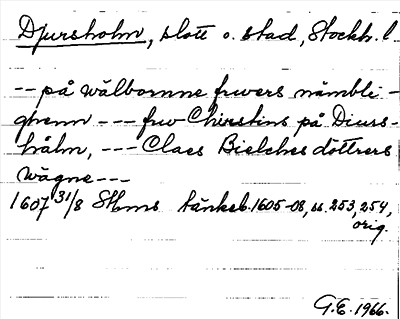 Djursholm, slott o. stad, Stockh. l
-- på wälbornne frwers nämbli-
ghenn --- frw Chirstins på Diurs-
hålm, --- Claes Bielches döttrers
wägne ---
1607 31/8 Sthms tänkeb. 1605-08, ss. 253, 254,
orig.
G.E. 1966.